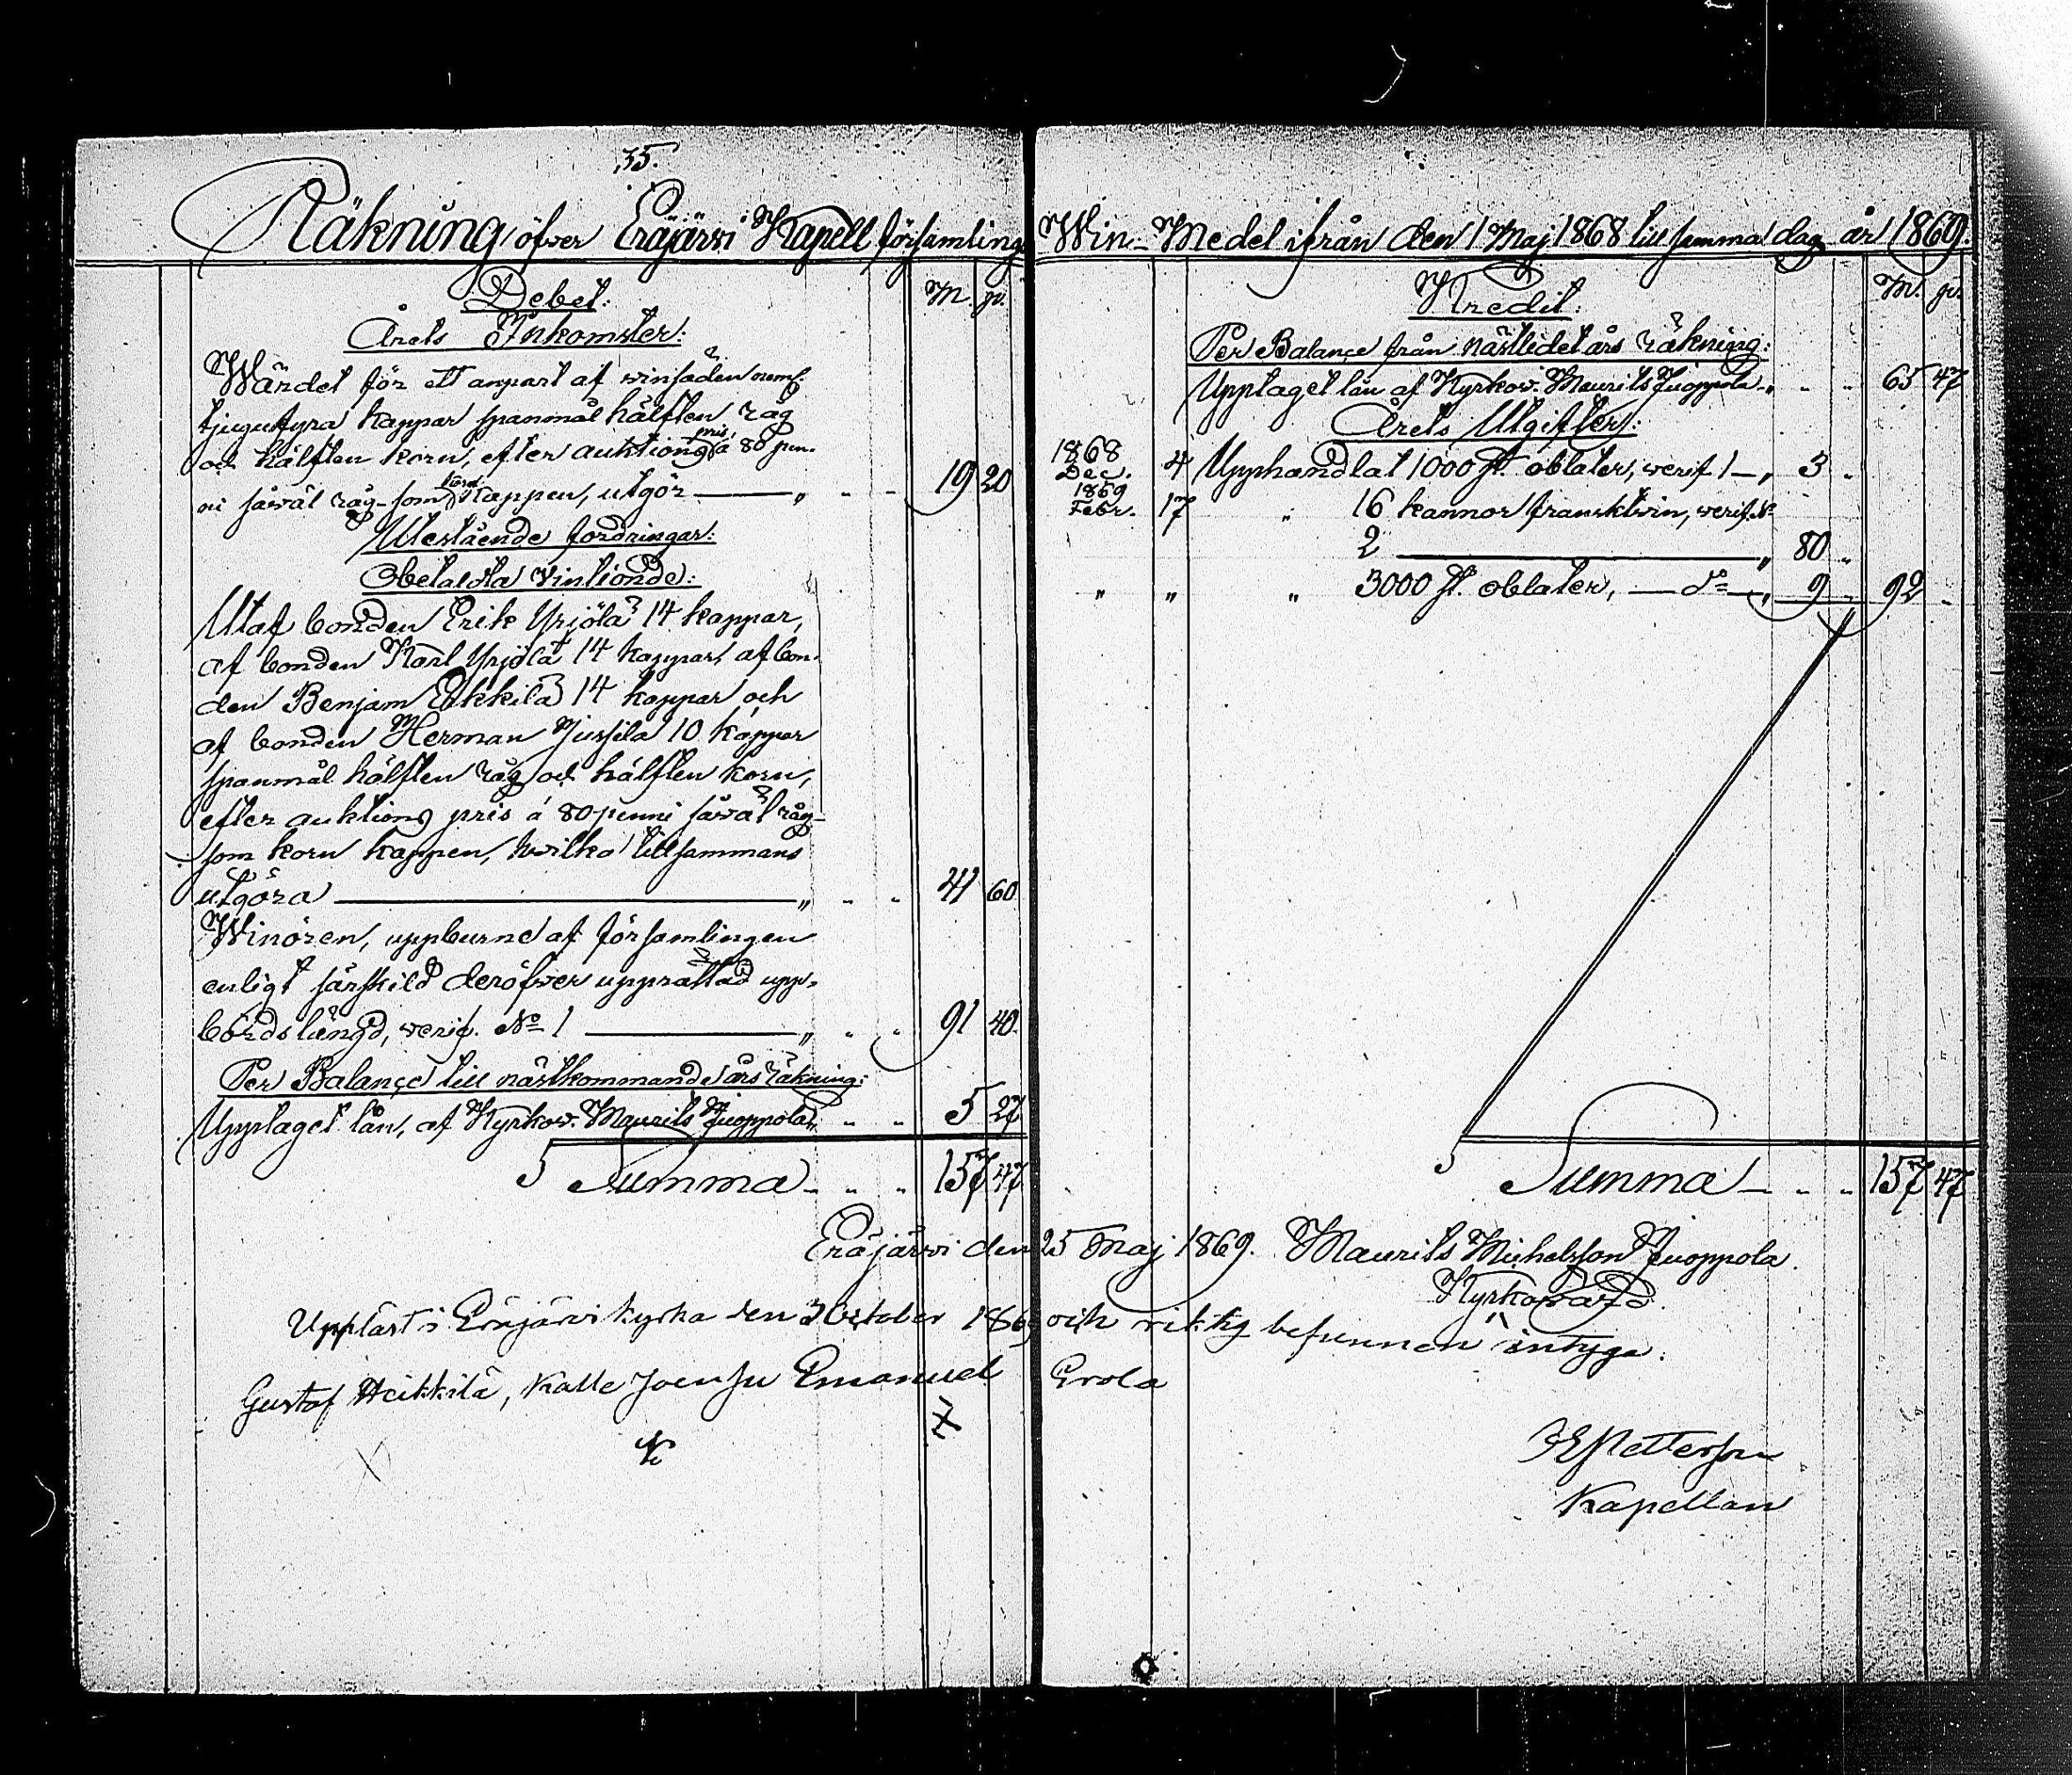 35.
Räkning öfwer Eräjärwi Kapell församlings Win-Medel ifrån den 1 Maj 1868 till samma dag år 1869.
Debet: M. p:
Årets Inkomster:
Wärdet för ett anpart af winsäden neml.
tjugufyra kappar spanmål hälften råg
och hälften korn, efter auktions pris á 80 pen-
ni såwäl råg- som korn kappen, utgör — „ 19 20
Utestående fordringar:
Obetaldta Vintionde:
Utaf bonden Erik Yrjölä 14 kappar,
af bonden Karl Yrjölä 14 kappar, af bon-
den Benjam Eskkilä 14 kappar och
af bonden Herman Jussila 10 kappar
spanmål hälften råg och hälften korn,
efter auktions pris á 80 penni såwäl råg-
som korn kappen, hwilka tillsammans
utgöra — „ 41 60
Winören, uppburne af församlingen
enligt särskild deröfwer upprättad upp-
bördslängd, werif. No 1 — „ 91 40.
Per Balançe till nästkommande års räkning:
Upptaget lån, af Kyrkow. Maurits Juoppola „ 5 27
Summa 157 47
Kredit: M. p:
Per Balançe från nästledet års räkning:
Upptaget lån af Kyrkow. Maurits Juoppola „ 65 47
Årets Utgifter:
1868
Dec. 4 Upphandlat 1000 st. oblater, werif 1 — „ 3 „
1869
Febr. 17 „ 16 kannor fransktwin, werif. No
2 — „ 80 „
„ „ „ 3000 st. oblater, — do — „ 9 „ 92 „
Summa 157 47
Eräjärwi den 25 Maj 1869. Maurits Michelsson Juoppola.
Kyrkowärd.
Uppläst i Eräjärvi kyrka den 3 October 1869 och riktig befunnen intyga:
Gustaf Heikkilä, Kalle Joensu Emanuel Erola
Petterson
Kapellan